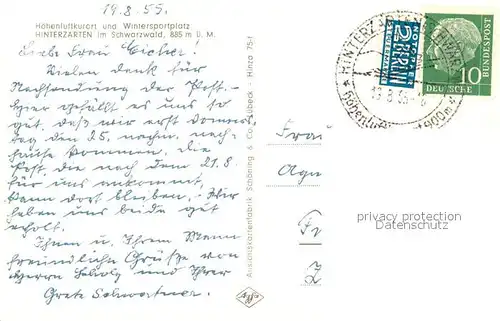 19.8.55.
Höhenluftkurort und Wintersportplatz
HINTERZARTEN im Schwarzwald, 885 m ü. M.
Liebe Frau
Vielen Dank für
Nachsendung der Post. -
Hier gefällt es uns so
gut, daß wir erst Donners-
tag den 25. nachm. nach-
hause kommen. Die
Post, die nach dem 21.8
für uns ankommt,
kann dort bleiben. - Wir
haben uns beide gut
erholt.
Ihnen u. Ihrem Mann
freundliche Grüße von
Herrn Scholz und Ihrer
Grete
Ansichtskartenfabrik Schöning & Co., Lübeck
Hinza 75 f
NOTOPFER
2 BERLIN
STEUERMARKE
HINTERZARTEN (SCHWARZW)
DEUTSCHE
BUNDESPOST
10
Frau
Agn
Fr
privacy protection
Datenschutz